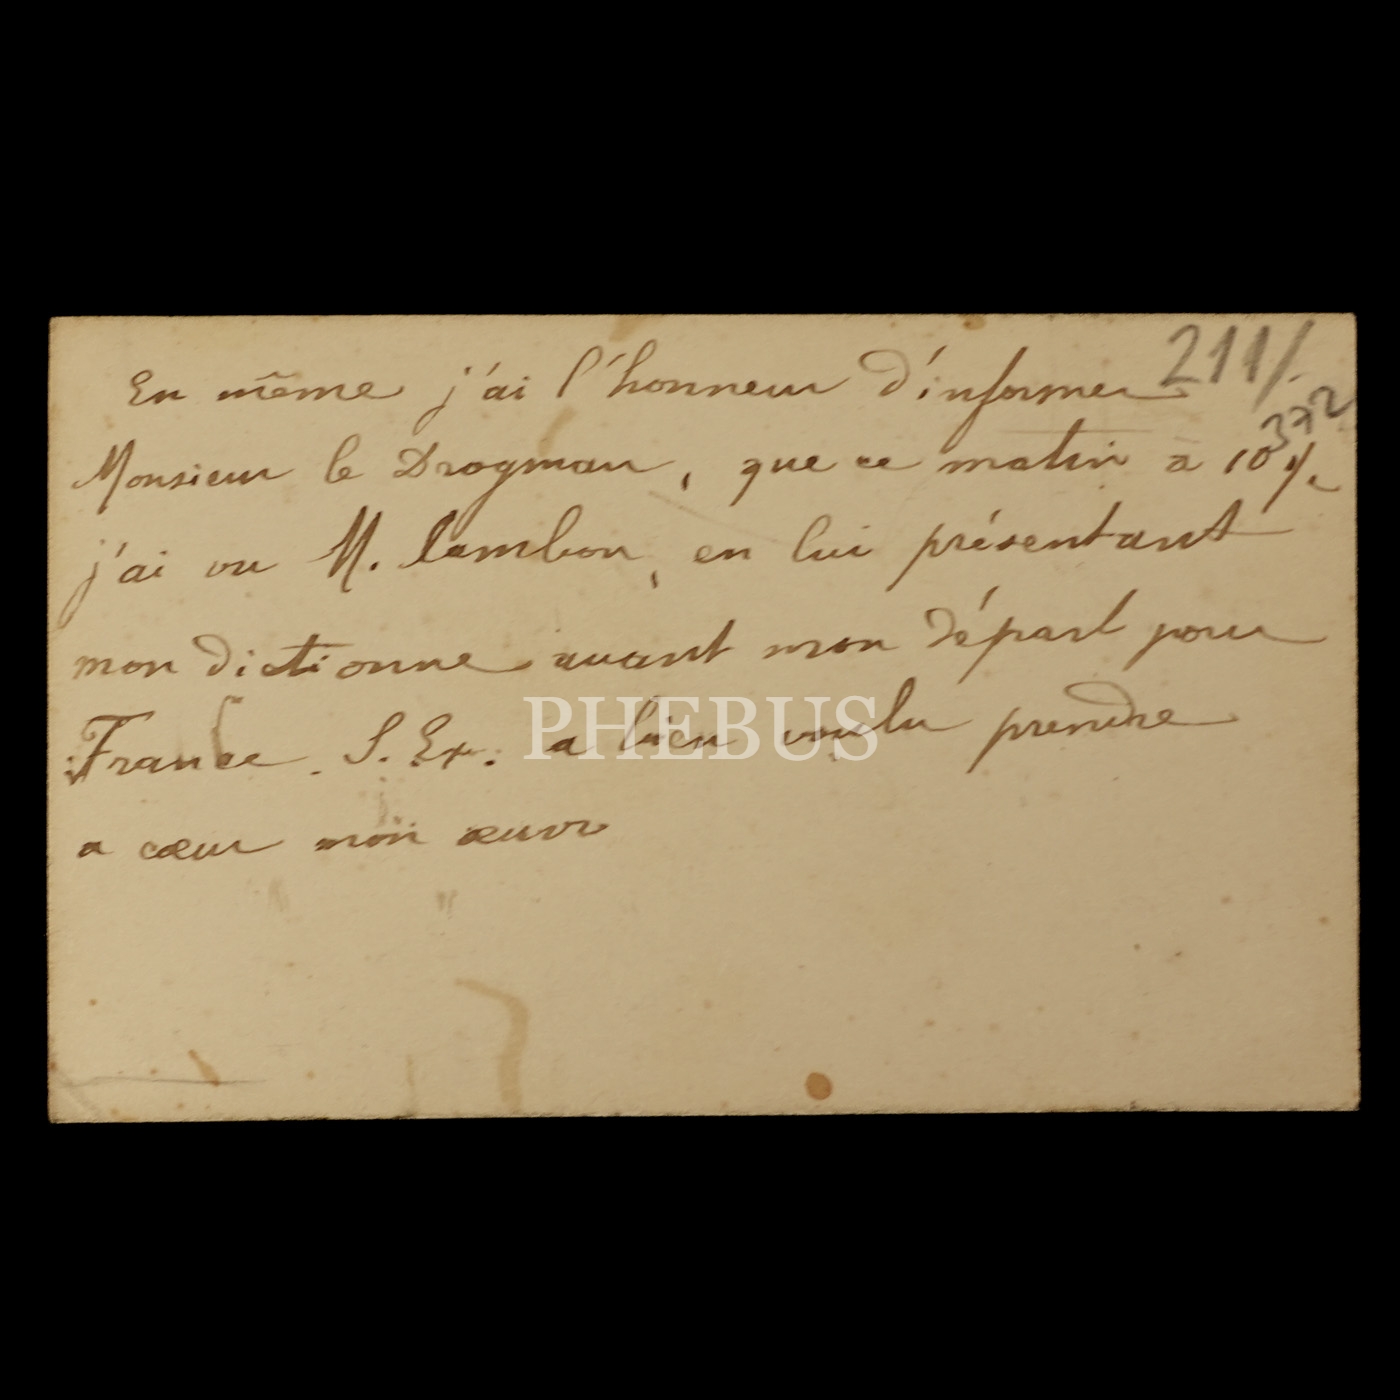 En même j'ai l'honneur d'informer 211/.
372
Monsieur le Drogman, que ce matin à 10 ½
j'ai vu M. Cambon, en lui présentant
mon dictionne avant mon départ pour
France. S. Ex. a bien voulu prendre
a cœur mon œuvr
PHEBUS